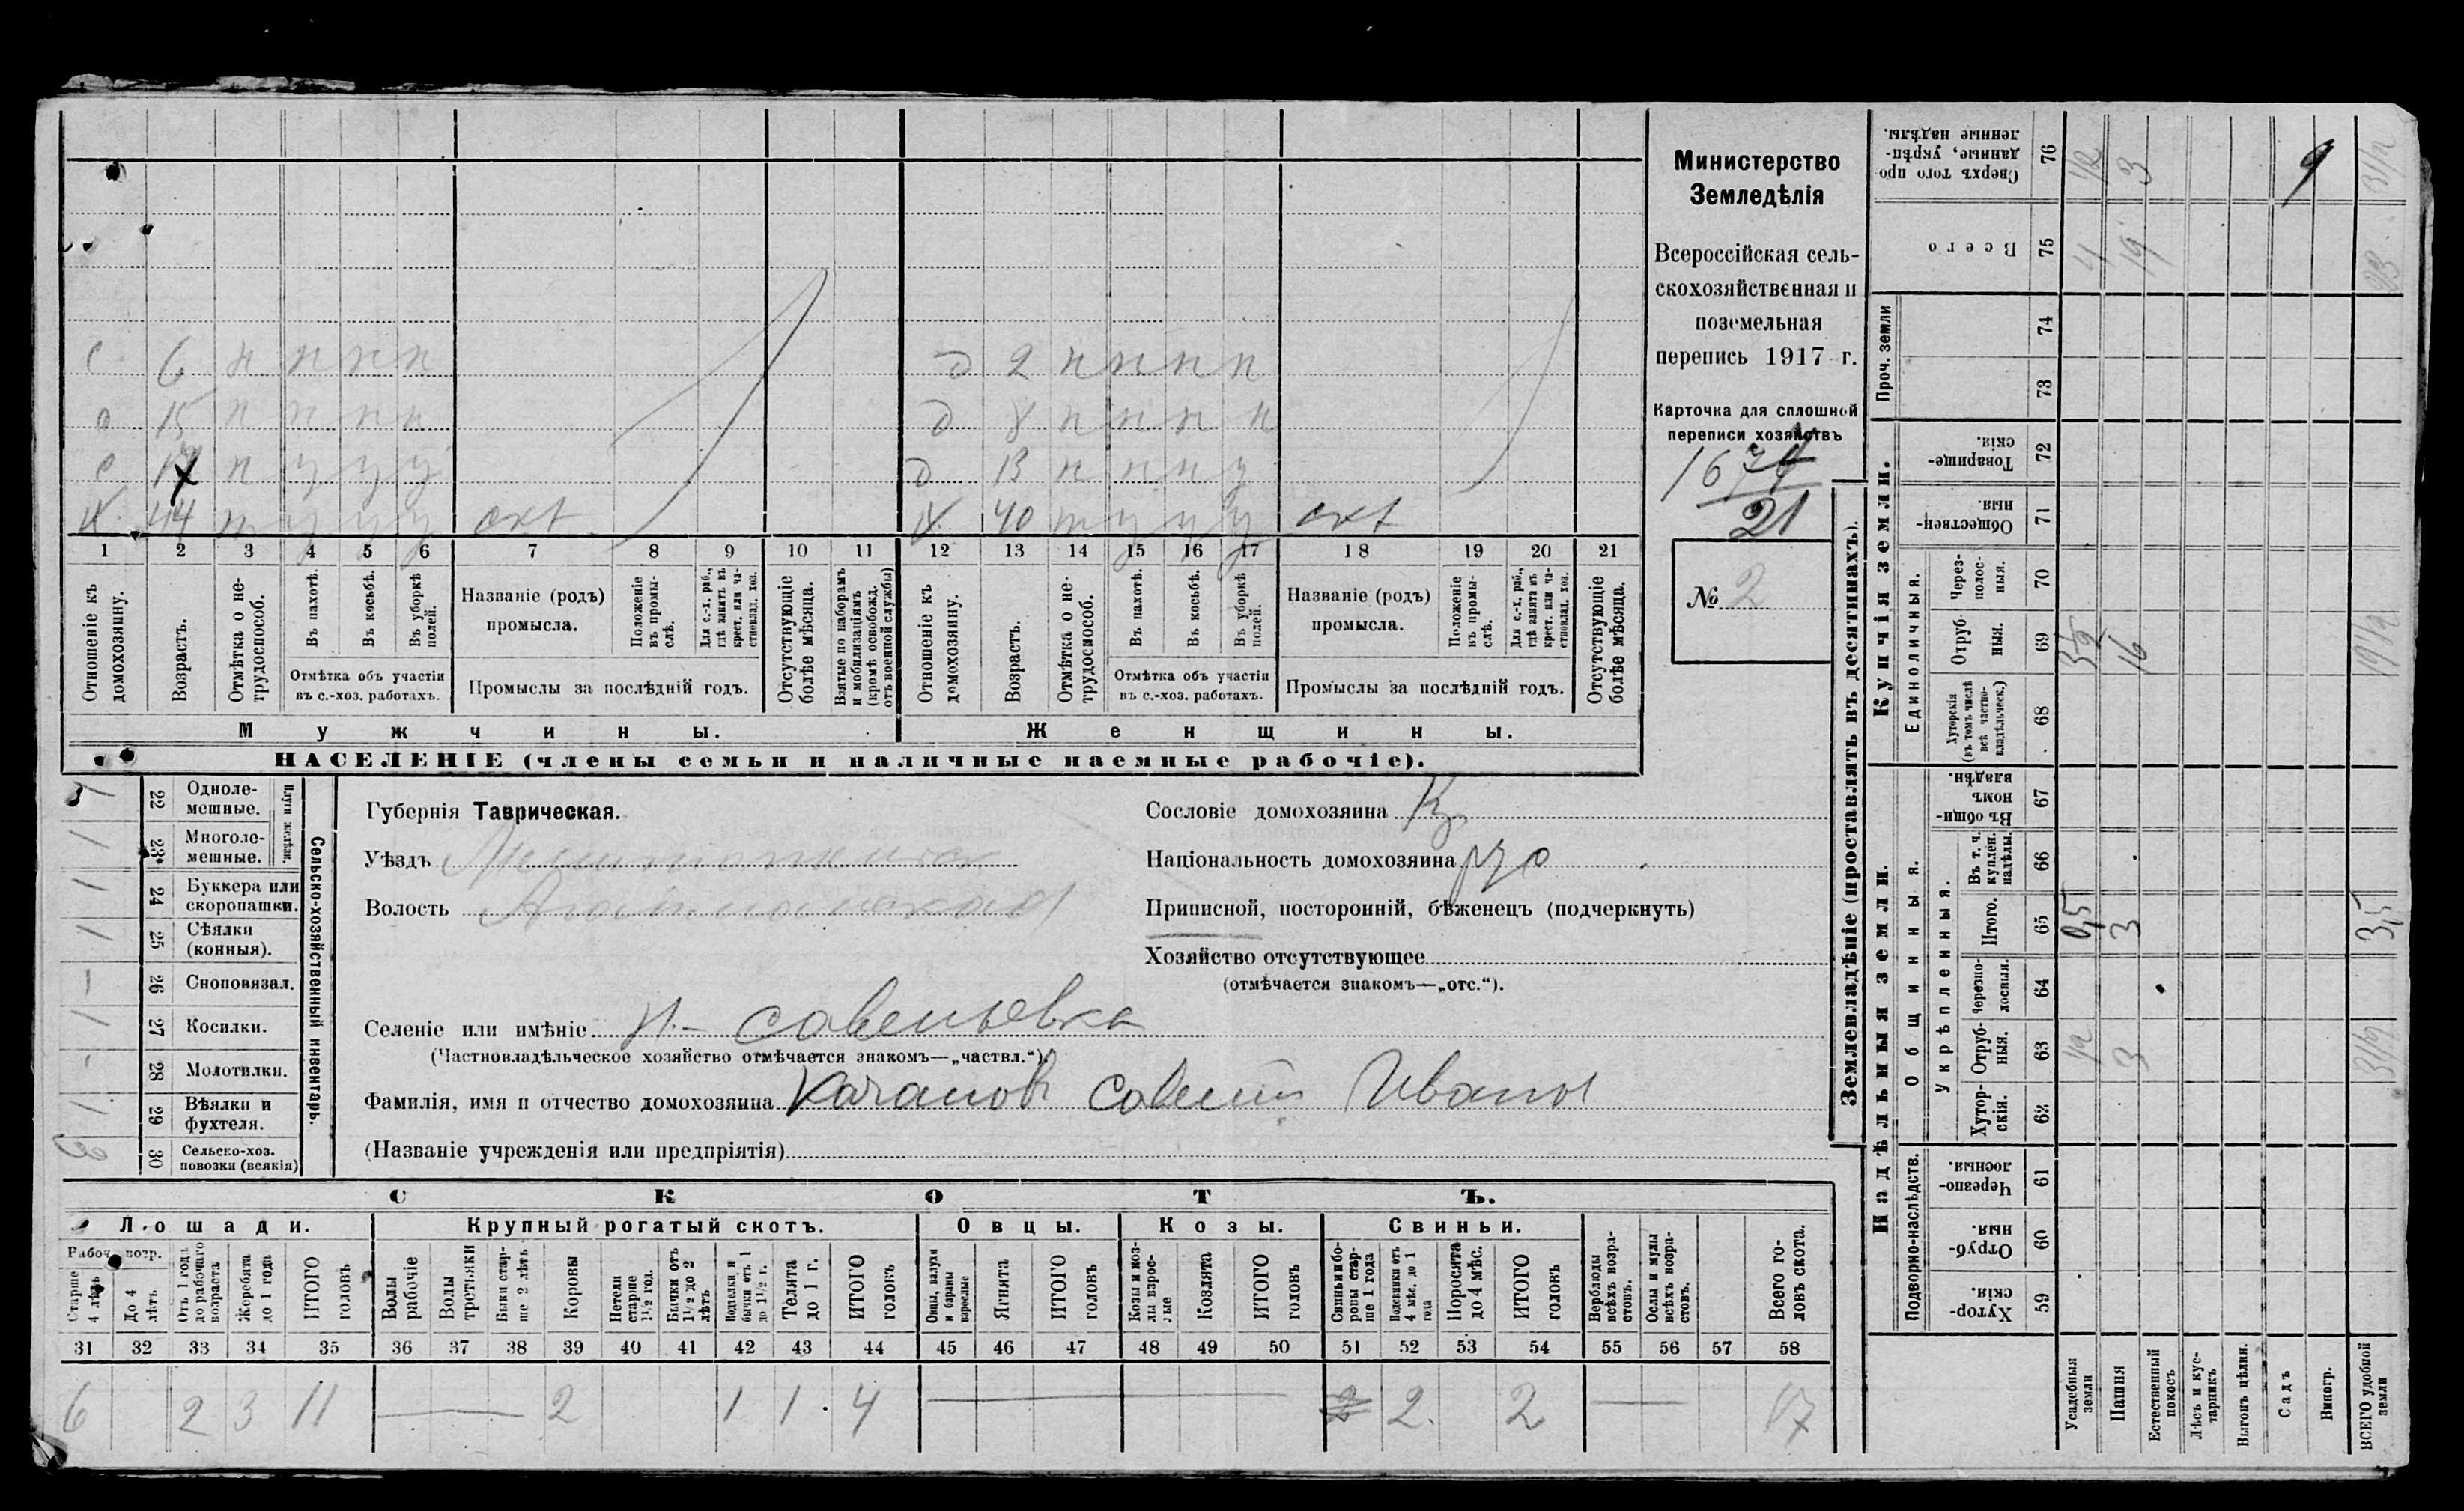 с 6 н н н н
д 2 н н н н
15 н н н н
д 8 н н н н
с н у у у
д 13 н н н у
44 у у у скт
40 у у у скт
1 2 3 4 5 6 7 8 9 10 11 12 13 14 15 16 17 18 19 20 21
Отношеніе къ домохозяину.
Возрастъ.
Отмѣтка о не-
трудоспособ.
Въ пахотѣ.
Въ косьбѣ.
Въ уборкѣ полей.
Отмѣтка объ участіи
въ с.-хоз. работахъ.
Названіе (родъ)
промысла.
Положеніе
въ промы-
слѣ.
Для с.-х. раб.,
гдѣ занятъ въ
крест. или ча-
стновлад. хоз.
Промыслы за послѣдній годъ.
Отсутствующіе
болѣе мѣсяца.
Взятые по наборамъ
и мобилизаціямъ
(кромѣ освобожд.
отъ военной службы)
Отношеніе къ
домохозяину.
Возрастъ.
Отмѣтка о не-
трудоспособ.
Въ пахотѣ.
Въ косьбѣ.
Въ уборкѣ
полей.
Отмѣтка объ участіи
въ с.-хоз. работахъ.
Названіе (родъ)
промысла.
Положеніе
въ промы-
слѣ.
Для с.-х. раб.,
гдѣ занята въ
крест. или ча-
стновлад. хоз.
Промыслы за послѣдній годъ.
Отсутствующіе
болѣе мѣсяца.
Мужчины.
Женщины.
НАСЕЛЕНІЕ (члены семьи и наличные наемные рабочіе).
Министерство
Земледѣлія
Всероссійская сель-
скохозяйственная и
поземельная
перепись 1917 г.
Карточка для сплошной
переписи хозяйствъ
21
№ 2
Сельско-хозяйственный инвентарь.
Плуги желѣзн.
22 Одноле-
мешные.
1 23 Многоле-
мешные.
1 24 Буккера или
скоропашки.
1 25 Сѣялки
(конныя).
– 26 Сноповязал.
1 27 Косилки.
- 28 Молотилки.
1 29 Вѣялки и
фухтеля.
30 Сельско-хоз.
повозки (всякія)
Губернія Таврическая.
Уѣздъ
Волость
Сословіе домохозяина Кр.
Національность домохозяина рус
Приписной, посторонній, бѣженецъ (подчеркнуть)
Хозяйство отсутствующее
(отмѣчается знакомъ—„отс.“).
Селеніе или имѣніе Н.- Савельевка
(Частновладѣльческое хозяйство отмѣчается знакомъ—„частвл.“).
Фамилія, имя и отчество домохозяина Качановъ Савелій Иванов
(Названіе учрежденія или предпріятія)
СКОТЪ.
Лошади.
Крупный рогатый скотъ.
Овцы.
Козы.
Свиньи.
Рабоч. возр.
Старше
4 лѣтъ
До 4
лѣтъ.
Отъ 1 года
до рабочаго
возраста
Жеребята
до 1 года
ИТОГО
головъ
Волы
рабочіе
Волы
третьяки
Быки стар-
ше 2 лѣтъ
Коровы
Нетели
старше
1½ год.
Бычки отъ
1½ до 2
лѣтъ
Подтелки и
бычки отъ 1
до 1½ г.
Телята
до 1 г.
ИТОГО
головъ
Овцы, валухи
и бараны
взрослые
Ягнята
ИТОГО
головъ
Козы и коз-
лы взрос-
лые
Козлята
ИТОГО
головъ
Свиньи и бо-
ровы стар-
ше 1 года
Подсвинки отъ
4 мѣс. до 1
года
Поросята
до 4 мѣс.
ИТОГО
головъ
Верблюды
всѣхъ возра-
стовъ.
Ослы и мулы
всѣхъ возра-
стовъ.
Всего го-
ловъ скота.
31 32 33 34 35 36 37 38 39 40 41 42 43 44 45 46 47 48 49 50 51 52 53 54 55 56 57 58
6 2 3 11 2 1 1 4 2 2 2 17
Землевладѣніе (проставлять въ десятинахъ).
Надѣльныя земли.
Купчія земли.
Проч. земли
Подворно-наслѣдств.
Общинныя.
Укрѣпленныя.
Единоличныя.
Хутор-
скія. 59
Отруб-
ныя. 60
Черезпо-
лосныя. 61
Хутор-
скія. 62
Отруб-
ныя. 63 ½ 3 3½
Черезпо-
лосныя. 64
Итого. 65 0,5 3 3,5
Въ т. ч.
куплен.
надѣлы. 66
Въ общи-
номъ
владѣн. 67
Хуторскія
(въ томъ числѣ
всѣ частно-
владѣльческ.) 68
Отруб-
ныя. 69 3½ 16 19½
Через-
полос-
ныя. 70
Обществен-
ныя. 71
Товарище-
скія. 72
73
74
Всего 75 4 19 23
Сверхъ того про
данные, укрѣп-
ленные надѣлы. 76 ½ 3 9 3½
Усадебныя
земли
Пашня
Естественный
покосъ
Лѣсъ и кус-
тарникъ
Выгонъ цѣлин.
Садъ
Виногр.
ВСЕГО удобной
земли